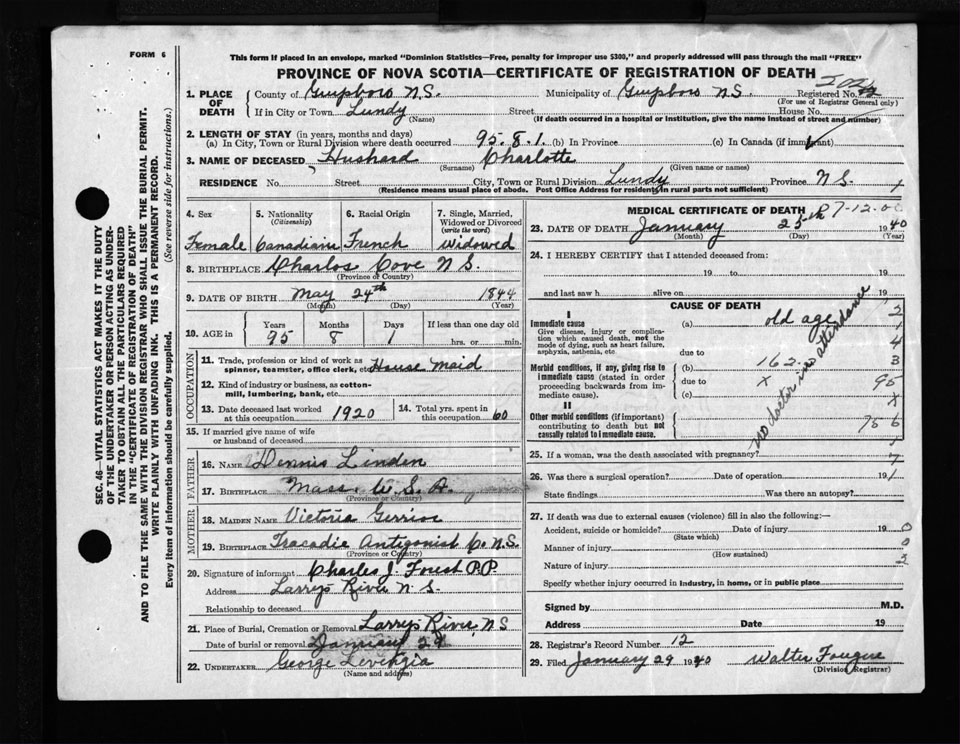 FORM 6
This form if placed in an envelope, marked "Dominion Statistics—Free, penalty for improper use $300," and properly addressed will pass through the mail "FREE"
PROVINCE OF NOVA SCOTIA—CERTIFICATE OF REGISTRATION OF DEATH
SEC. 46—VITAL STATISTICS ACT MAKES IT THE DUTY
OF THE UNDERTAKER OR PERSON ACTING AS UNDER-
TAKER TO OBTAIN ALL THE PARTICULARS REQUIRED
IN THE "CERTIFICATE OF REGISTRATION OF DEATH"
AND TO FILE THE SAME WITH THE DIVISION REGISTRAR WHO SHALL ISSUE THE BURIAL PERMIT.
WRITE PLAINLY WITH UNFADING INK. THIS IS A PERMANENT RECORD.
Every item of Information should be carefully supplied. (See reverse side for instructions.)
1. PLACE OF DEATH County of Guysboro N.S. Municipality of Guysboro N.S. Registered No.
(For use of Registrar General only)
If in City or Town Lundy Street House No.
(Name) (If death occurred in a hospital or institution, give the name instead of street and number)
2. LENGTH OF STAY (in years, months and days)
(a) In City, Town or Rural Division where death occurred 95. 8. 1. (b) In Province (c) In Canada (if immigrant)
3. NAME OF DECEASED Hushard Charlotte
(Surname) (Given name or names)
RESIDENCE No. Street City, Town or Rural Division Lundy Province N.S.
(Residence means usual place of abode. Post Office Address for residents in rural parts not sufficient)
4. Sex 5. Nationality (Citizenship) 6. Racial Origin 7. Single, Married, Widowed or Divorced (write the word)
Female Canadian French Widowed
8. BIRTHPLACE Charlos Cove N.S.
(Province or Country)
9. DATE OF BIRTH May 24th 1844
(Month) (Day) (Year)
10. AGE in Years Months Days If less than one day old
95 8 1 hrs. or min.
OCCUPATION
11. Trade, profession or kind of work as spinner, teamster, office clerk, etc. House maid
12. Kind of industry or business, as cotton-mill, lumbering, bank, etc.
13. Date deceased last worked at this occupation 1920 14. Total yrs. spent in this occupation 60
15. If married give name of wife or husband of deceased
FATHER
16. NAME Dennis Linden
17. BIRTHPLACE Mass. U.S.A.
(Province or Country)
MOTHER
18. MAIDEN NAME Victoria
19. BIRTHPLACE Tracadie Antigonish Co. N.S.
(Province or Country)
20. Signature of informant Charles J. Forest P.P.
Address Larrys River N.S.
Relationship to deceased
21. Place of Burial, Cremation or Removal Larrys River, N.S
Date of burial or removal January 29
22. UNDERTAKER George
(Name and address)
MEDICAL CERTIFICATE OF DEATH
23. DATE OF DEATH January 25th 1940
(Month) (Day) (Year)
24. I HEREBY CERTIFY that I attended deceased from:
19 to 19
and last saw h alive on 19
CAUSE OF DEATH
I
Immediate cause (a) old age
Give disease, injury or complication which caused death, not the mode of dying, such as heart failure, asphyxia, asthenia, etc.
due to
Morbid conditions, if any, giving rise to immediate cause (stated in order proceeding backwards from immediate cause). (b) 162
due to X
(c)
II
Other morbid conditions (important) contributing to death but not causally related to immediate cause.
no doctor in attendance
25. If a woman, was the death associated with pregnancy?
26. Was there a surgical operation? Date of operation 19
State findings Was there an autopsy?
27. If death was due to external causes (violence) fill in also the following:—
Accident, suicide or homicide? Date of injury 19
(State which)
Manner of injury
(How sustained)
Nature of injury
Specify whether injury occurred in industry, in home, or in public place
Signed by M.D.
Address Date 19
28. Registrar's Record Number 12
29. Filed January 29 1940 Walter Fougere
(Division Registrar)